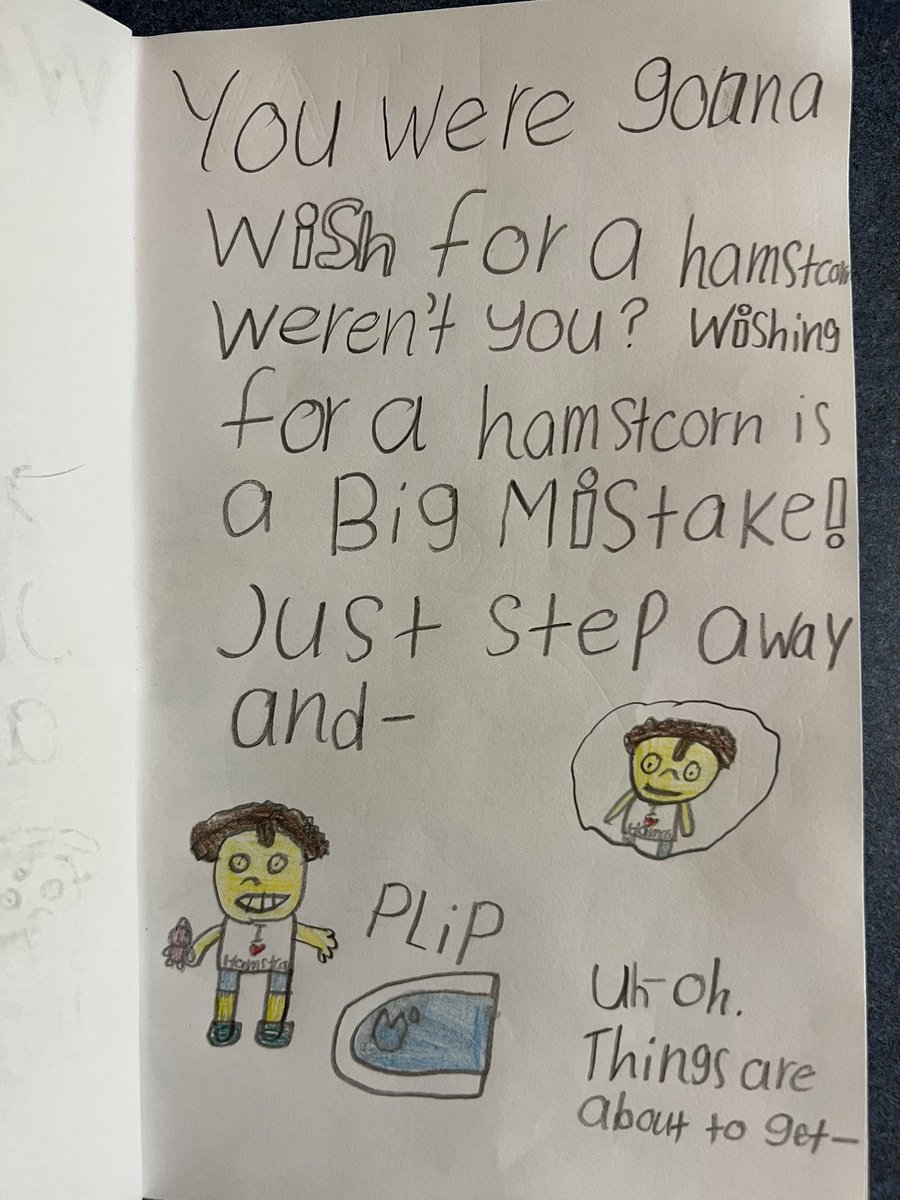 You were gonna
wish for a hamstcorn
weren't you? Wishing
for a hamstcorn is
a Big Mistake!
Just step away
and-
I
Hamstco
I
PLiP
Uh-oh.
Things are
about to get-